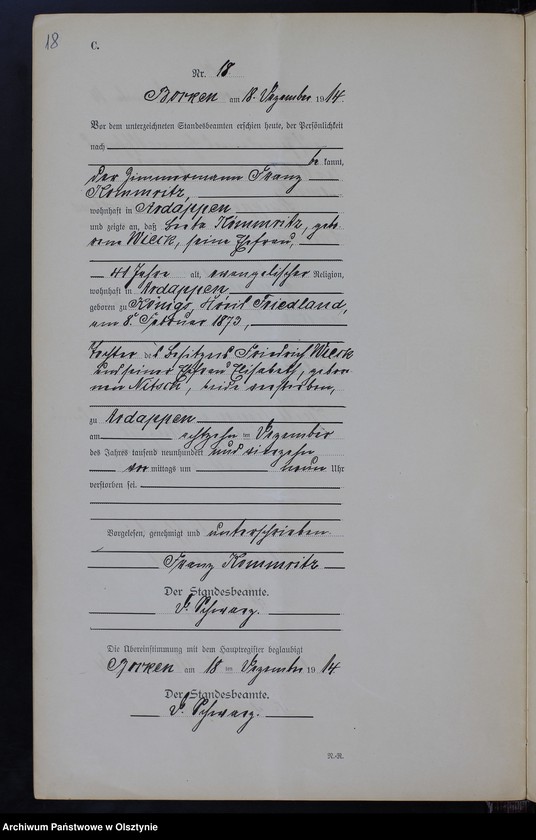 18
C.
Nr. 18
Borken am 18. Dezember 1914.
Vor dem unterzeichneten Standesbeamten erschien heute, der Persönlichkeit
nach
be kannt,
der Zimmermann Franz
Kommritz,
wohnhaft in Ardappen
und zeigte an, daß Kommritz, gebo
rene Wieck, seine Ehefrau,
41 Jahre alt, evangelischer Religion,
wohnhaft in Ardappen
geboren zu Friedland,
am 8. Februar 1873,
Tochter des Besitzers Friedrich Wieck
und seiner Ehefrau Elisabeth, gebore
nen Nitsch, beide verstorben,
zu Ardappen
am achtzehn ten Dezember
des Jahres tausend neunhundert und vierzehn
vor mittags um neun Uhr
verstorben sei.
Vorgelesen, genehmigt und unterschrieben
Franz Kommritz
Der Standesbeamte.
Schwarz.
Die Übereinstimmung mit dem Hauptregister beglaubigt
Borken am 18 ten Dezember 1914
Der Standesbeamte.
Schwarz.
R.-R.
Archiwum Państwowe w Olsztynie